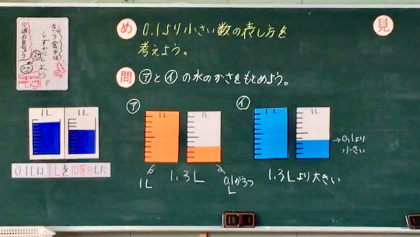 め 0.1より小さい数の表し方を
考えよう。
見
問 アとイの水のかさをもとめよう。
1L 1L
0.1Lは 1Lを10等分した
ア
1L 1L
1L
1.3L
0.1が3つ
L
イ
1L 1L
0.1より
小さい
1.3Lより大きい